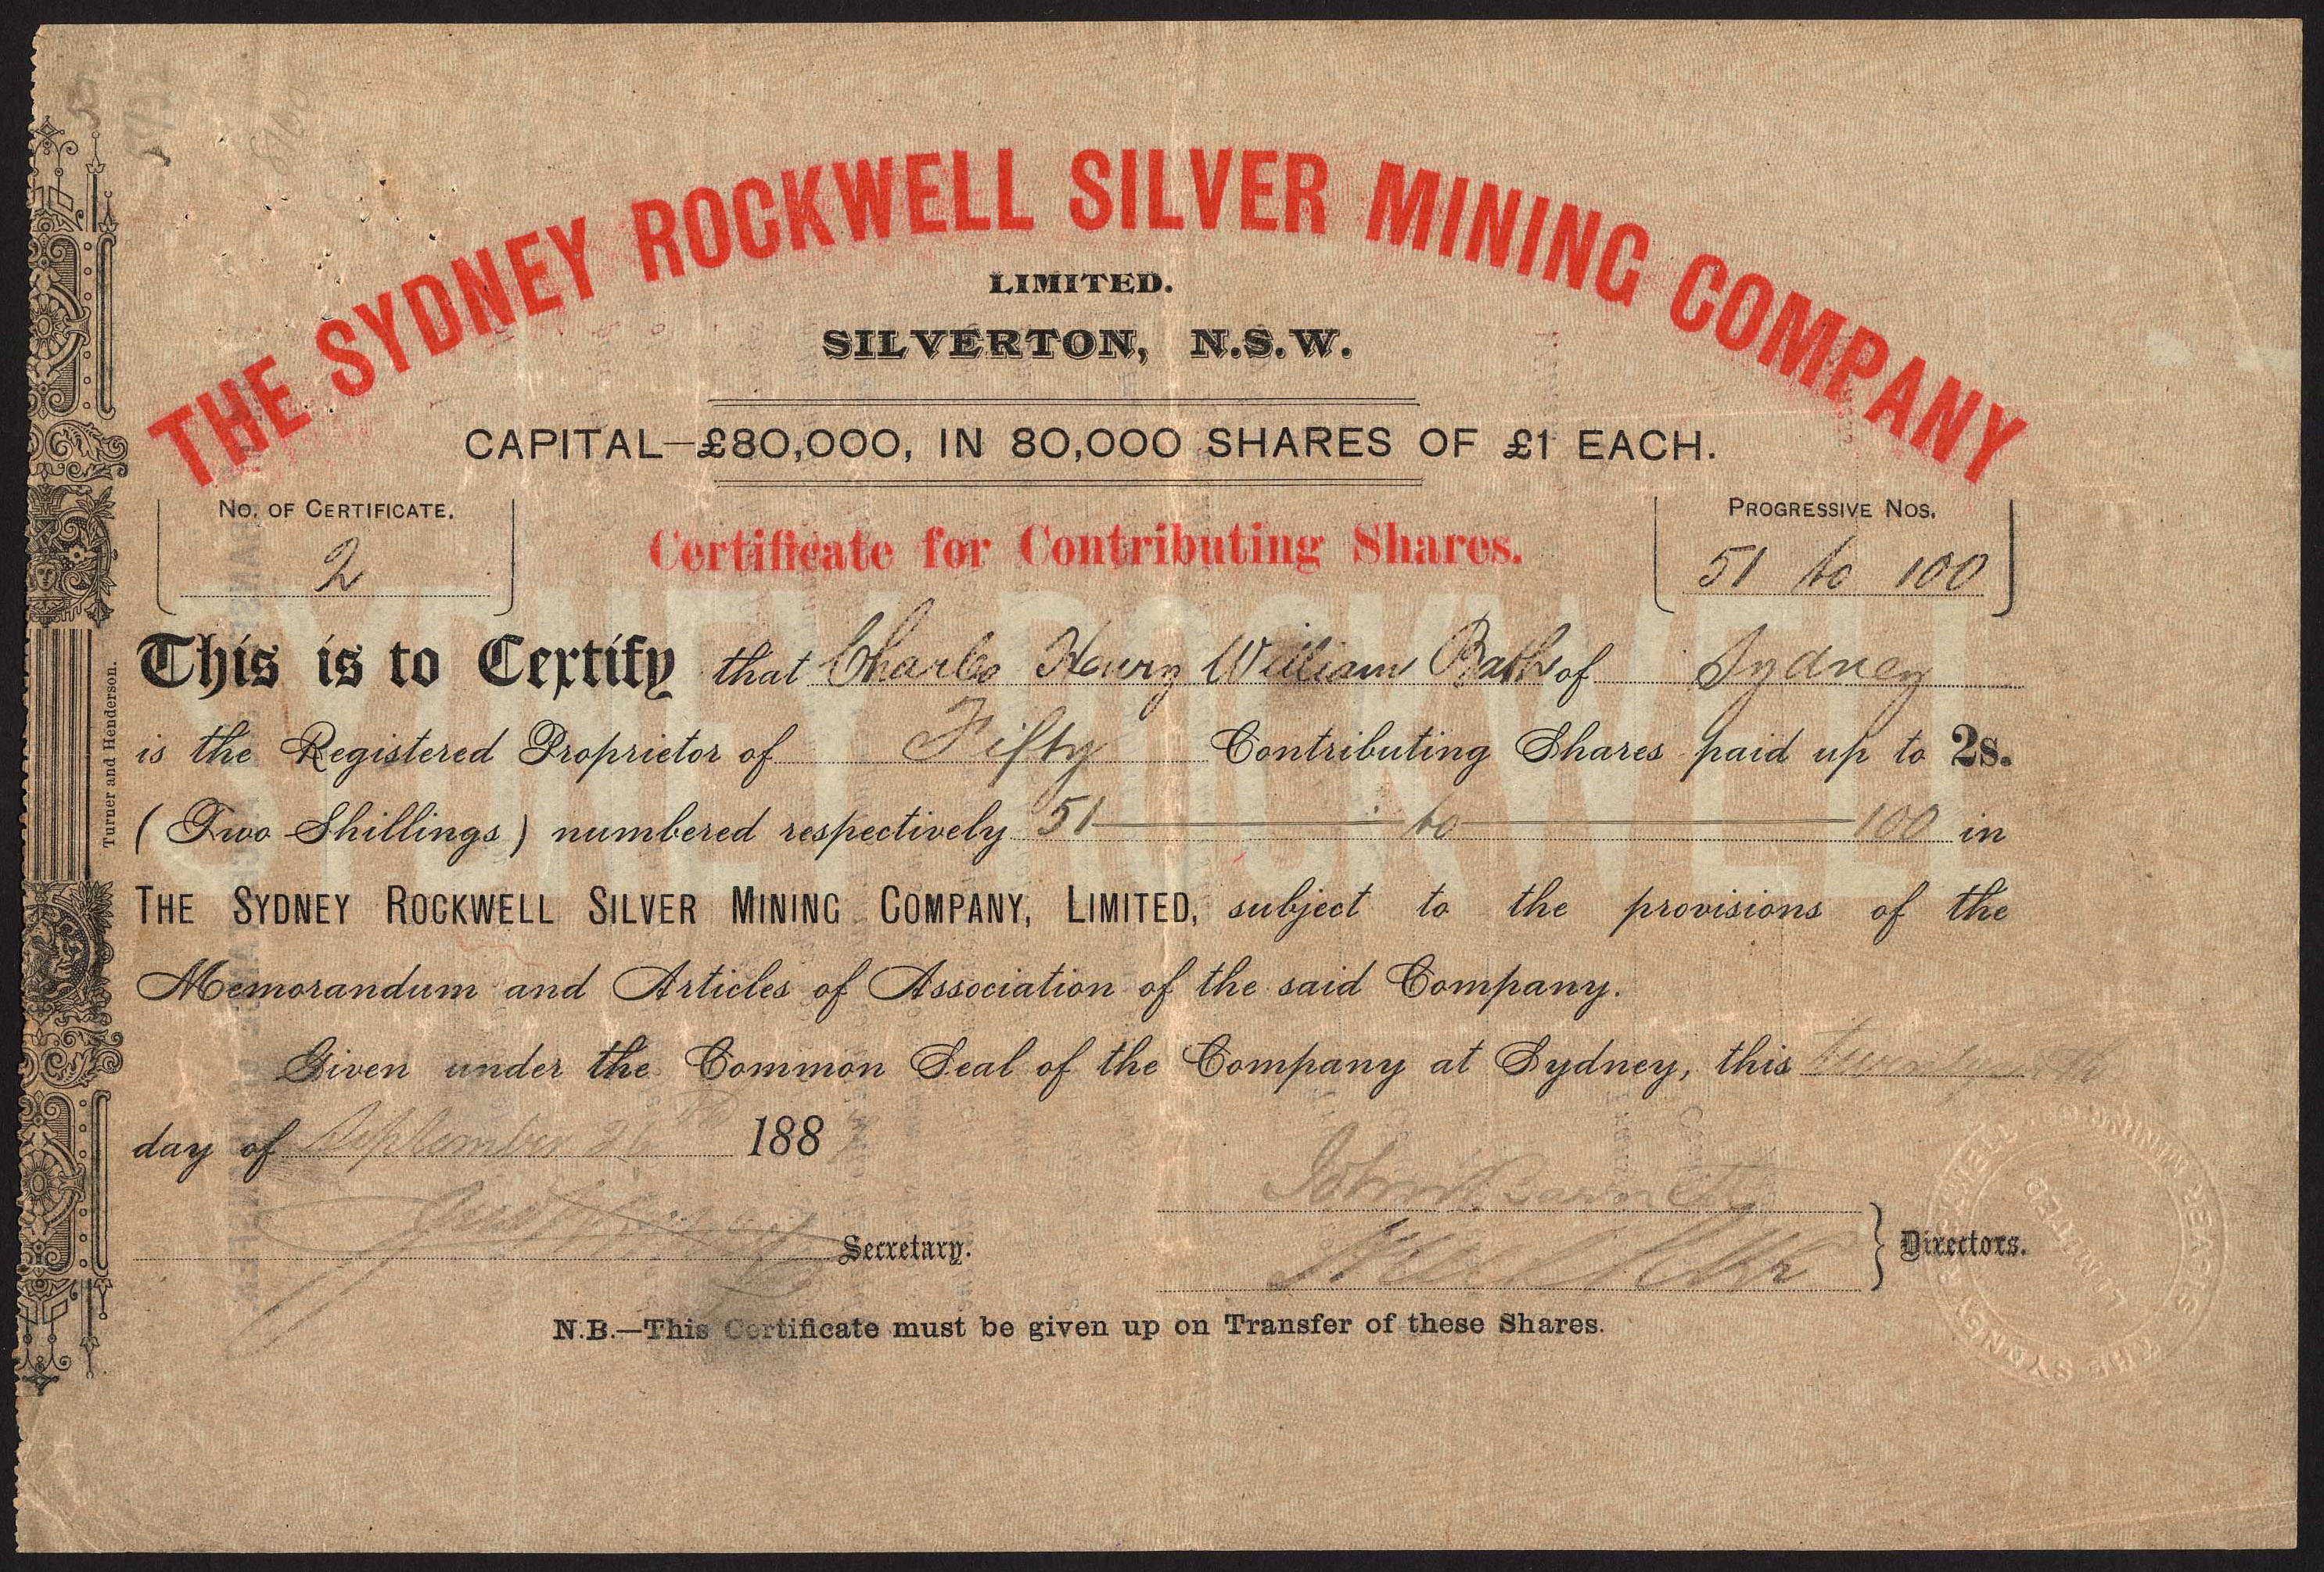 THE SYDNEY ROCKWELL SILVER MINING COMPANY
LIMITED.
SILVERTON, N.S.W.
CAPITAL—£80,000, IN 80,000 SHARES OF £1 EACH.
No. of Certificate.
2
Certificate for Contributing Shares.
Progressive Nos.
51 to 100
SYDNEY ROCKWELL
This is to Certify that Charles Henry William Bath of Sydney
is the Registered Proprietor of Fifty Contributing Shares paid up to 2s.
(Two Shillings) numbered respectively 51 to 100 in
The Sydney Rockwell Silver Mining Company, Limited, subject to the provisions of the
Memorandum and Articles of Association of the said Company.
Given under the Common Seal of the Company at Sydney, this
day of September 26th 1887
John Barnet
Secretary.
Directors.
N.B.—This Certificate must be given up on Transfer of these Shares.
Turner and Henderson.
THE SYDNEY ROCKWELL SILVER MINING CO
LIMITED